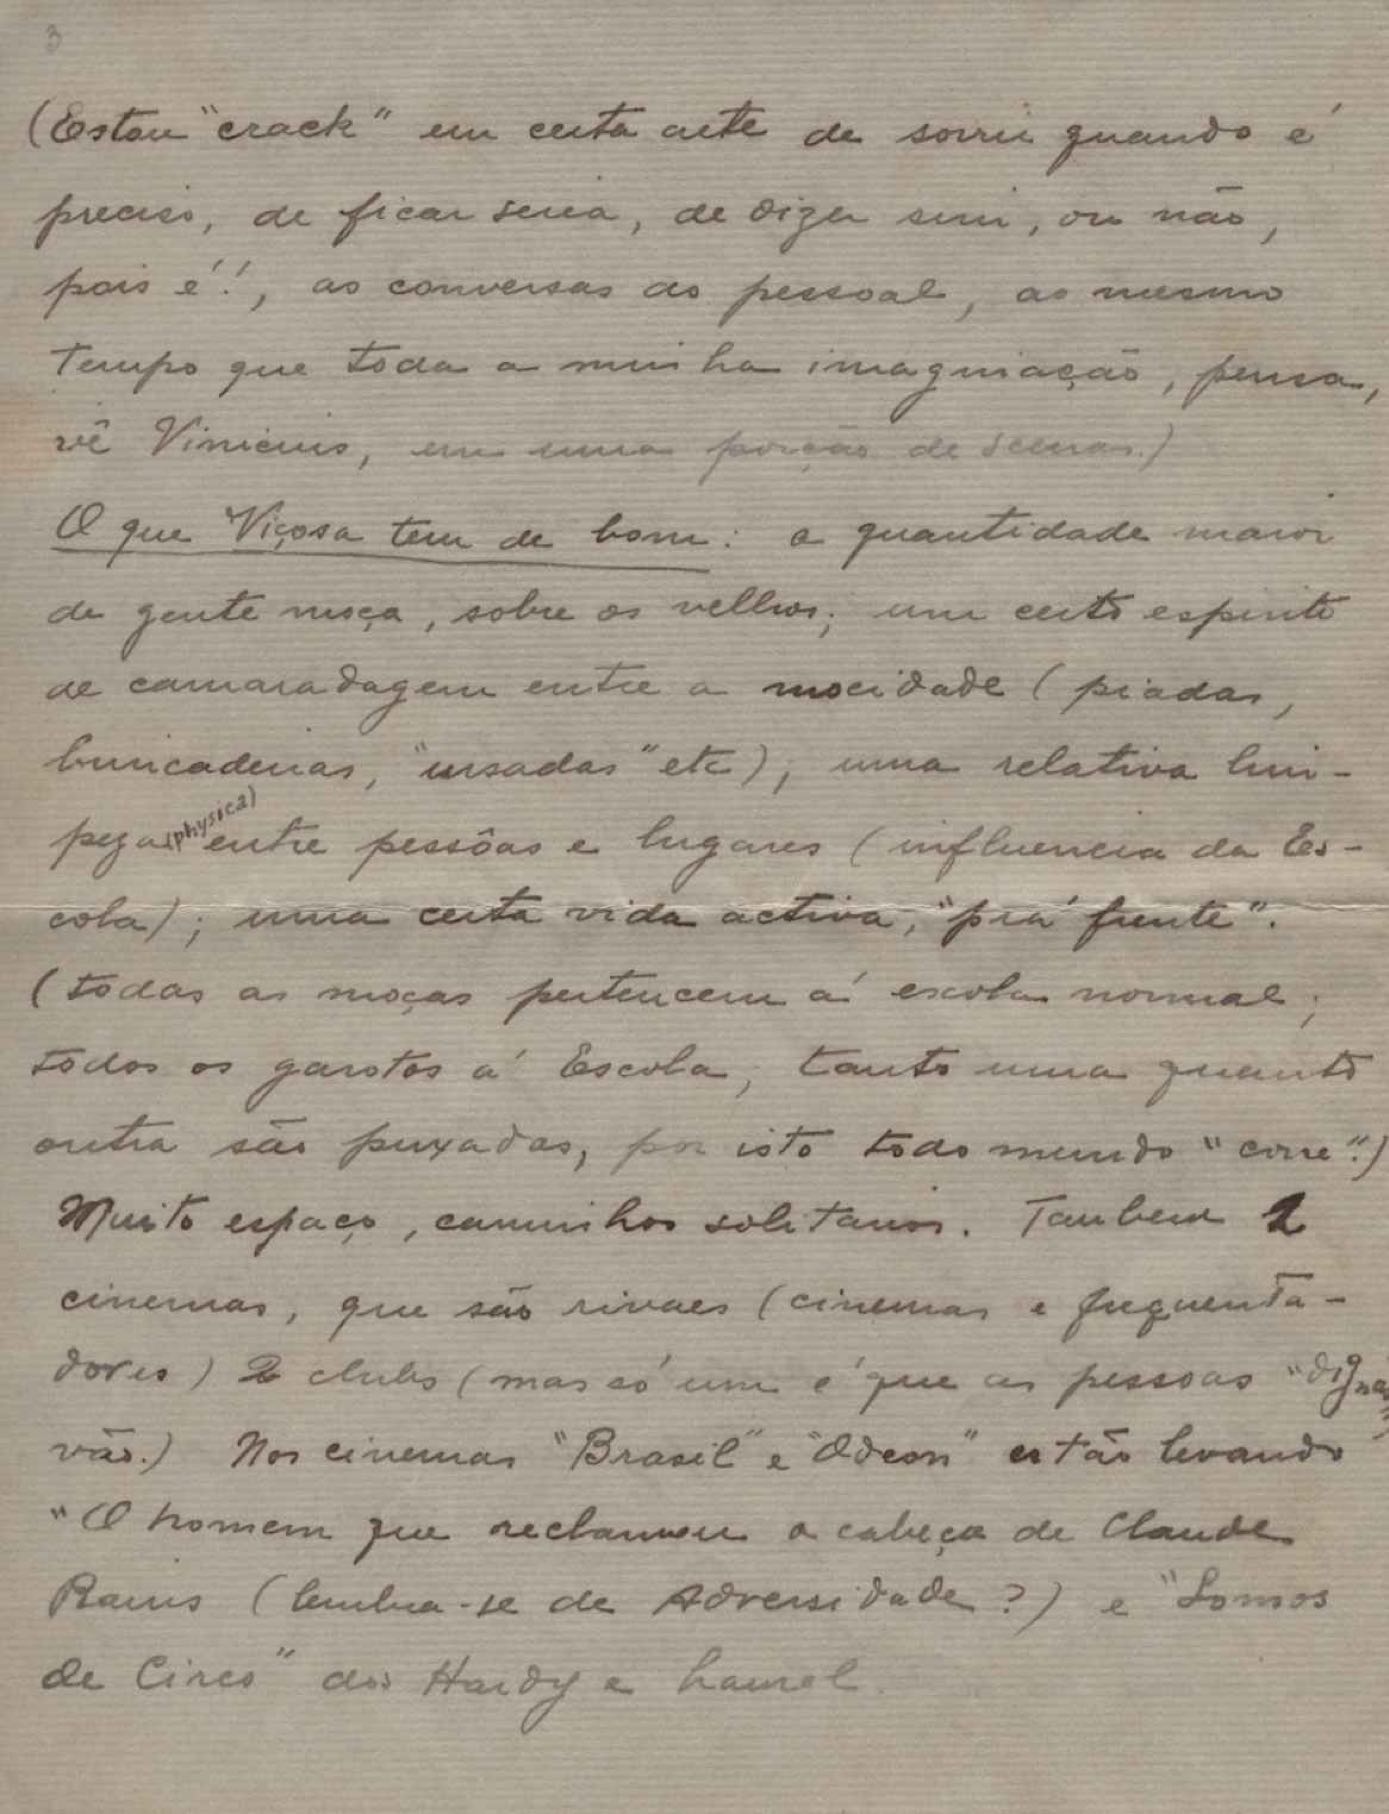 3
(Estou "crack" em certa arte de sorrir quando é
preciso, de ficar seria, de dizer sim, ou não,
pois é!, as conversas do pessoal, ao mesmo
tempo que toda a minha imaginação, pensa,
vê Vinicius, em uma porção de scenas.)
O que Viçosa tem de bom: a quantidade maior
de gente moça, sobre os velhos; um certo espirito
de camaradagem entre a mocidade (piadas,
brincadeiras, "ursadas" etc); uma relativa lim-
peza (physica) entre pessôas e lugares (influencia da Es-
cola); uma certa vida activa, "prá frente".
(todas as moças pertencem á escola normal;
todos os garotos á Escola, tanto uma quanto
outra são puxadas, por isto todo mundo "corre".)
Muito espaço, caminhos solitarios. Tambem 2
cinemas, que são rivaes (cinemas e frequenta-
dores) 2 clubs (mas só um é que as pessoas "dignas"
vão.) Nos cinemas "Brasil" e "Odeon" estão levando
"O homem que reclamou a cabeça de Claude
Rains (lembra-se de Adversidade?) e "Somos
de Circo" dos Hardy e Laurel.